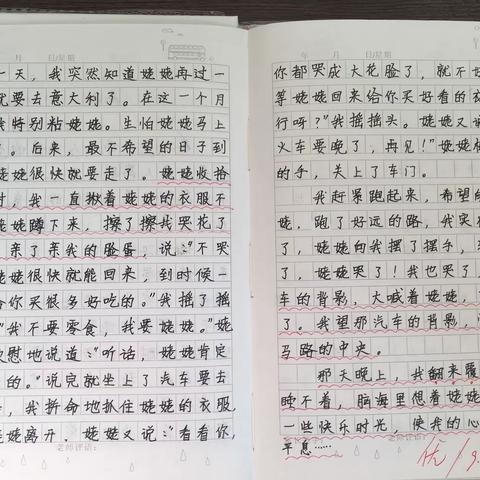 月 日/星期
一天，我突然知道姥姥再过一
就要去意大利了。在这一个月
我特别粘姥姥。生怕姥姥马上
。后来，最不希望的日子到
姥姥很快就要走了。姥姥收拾
时，我一直揪着姥姥的衣服不
姥姥蹲下来，擦了擦我哭花了
亲了亲我的脸蛋，说："不哭
姥姥很快就能回来，到时候一
给你买很多好吃的。"我摇了摇
"我不要零食，我要姥姥。"姥
慰地说道："听话，姥姥肯定
的。"说完就坐上了汽车要去
，我拼命地抓住姥姥的衣服
姥姥离开，姥姥又说："看看你，
老师评语：
年 月 日/星期
你都哭成大花脸了，就不好
等姥姥回来给你买好看的衣
行呀？"我摇摇头。姥姥又说
火车要晚了，再见！"姥姥
的手，关上了车门。
我赶紧跑起来，希望能
姥，跑了好远的路，我实
了，姥姥向我摆了摆手，
，姥姥哭了！我也哭了，
车的背影，大喊着姥姥，
了。我望那汽车的背影，
马路的中央。
那天晚上，我翻来覆
睡不着，脑海里想着姥姥
一些快乐时光，使我的心
平息……
老师评语：
优